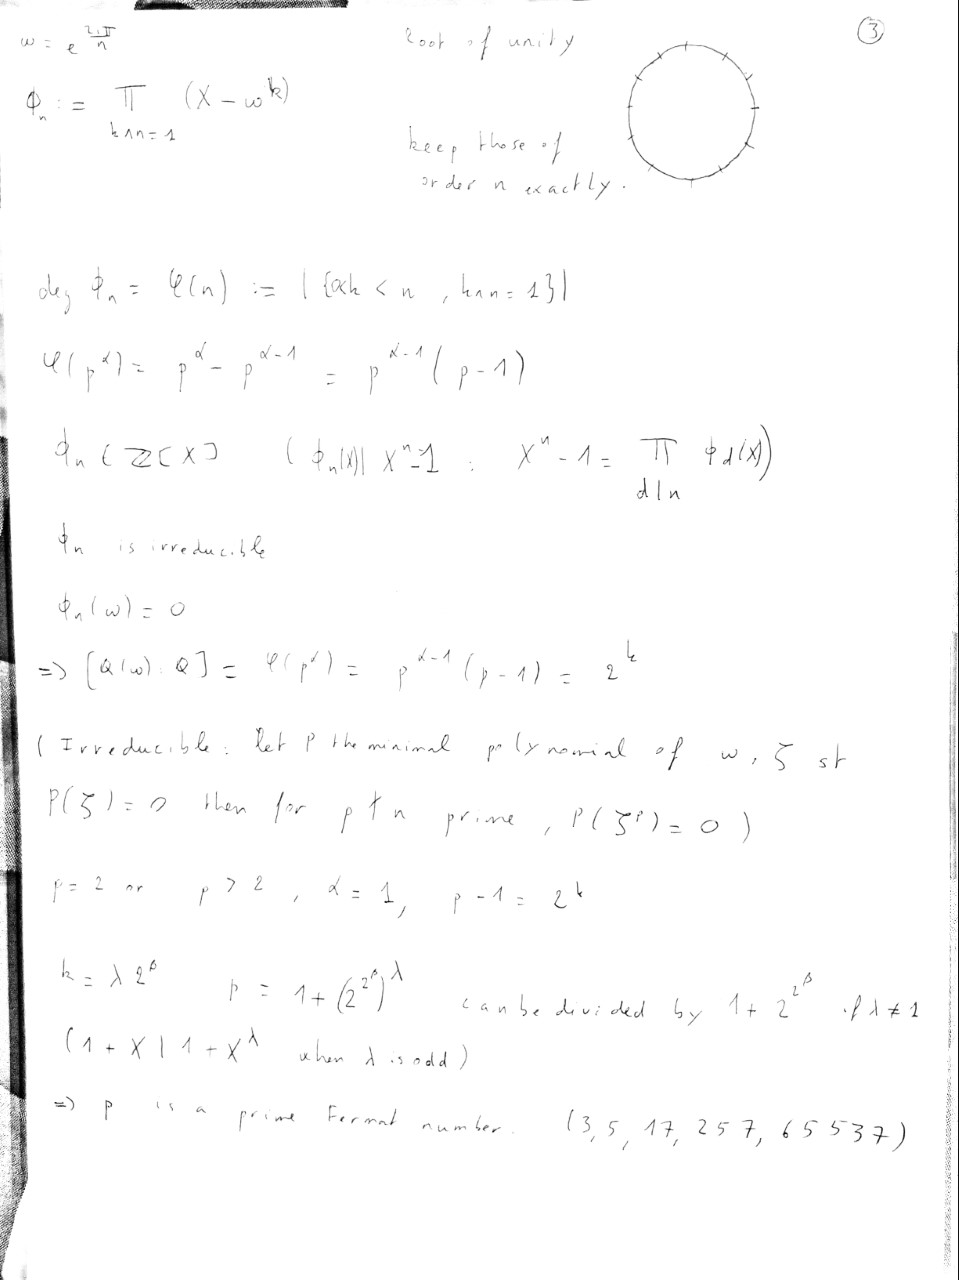 ω = e^{2iπ/n} root of unity ③
ϕ_n := ∏_{k∧n=1} (X - ω^k)
keep those of
order n exactly.
deg ϕ_n = φ(n) := | {0≤k < n, k∧n = 1} |
φ(p^α) = p^α - p^{α-1} = p^{α-1}(p-1)
ϕ_n ∈ ℤ[X] (ϕ_n(X) | X^n-1 : X^n - 1 = ∏_{d|n} ϕ_d(X))
ϕ_n is irreducible
ϕ_n(ω) = 0
=> [Q(ω):Q] = φ(p^α) = p^{α-1}(p-1) = 2^k
(Irreducible: let P the minimal polynomial of ω, ζ st
P(ζ) = 0 then for p∤n prime, P(ζ^p) = 0)
p = 2 or p > 2, α = 1, p-1 = 2^k
k = λ 2^β p = 1 + (2^{2^β})^λ can be divided by 1 + 2^{2^β} if λ ≠ 1
(1 + X | 1 + X^λ when λ is odd)
=> p is a prime Fermat number. (3, 5, 17, 257, 65537)